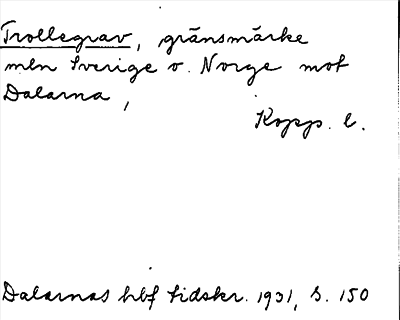 Trollegrav, gränsmärke
mln Sverige o. Norge mot
Dalarna,
Kopp. l.
Dalarnas hbf tidskr. 1931, s. 150